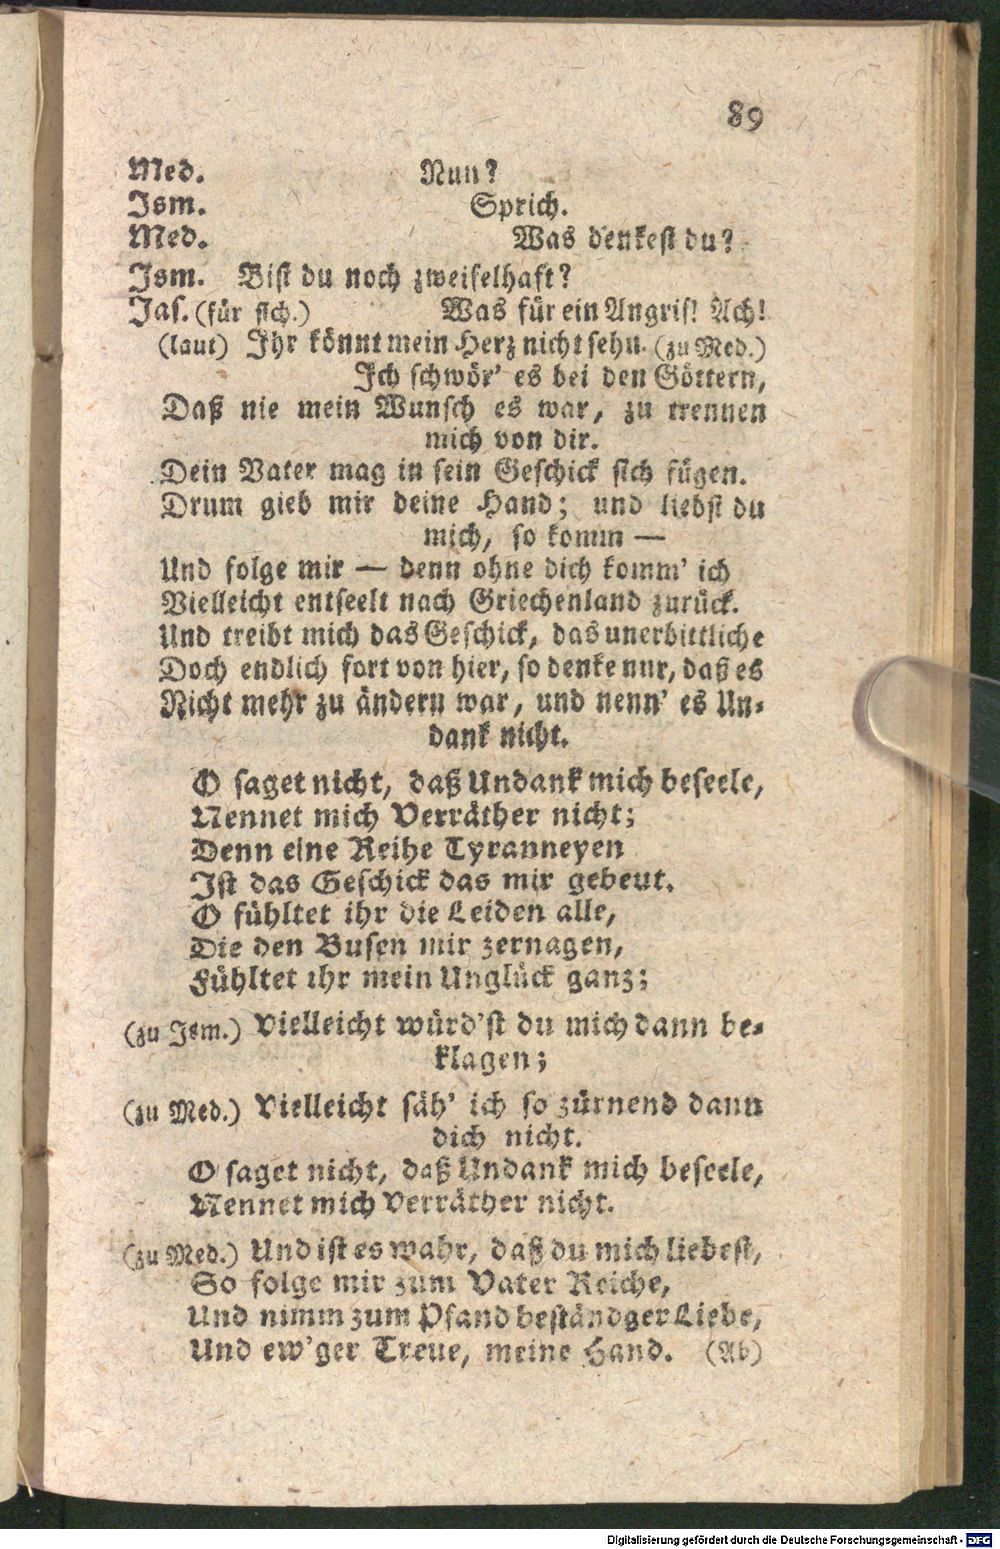 89
Med. Nun?
Ism. Sprich.
Med. Was denkest du?
Ism. Bist du noch zweifelhaft?
Jas. (für sich.) Was für ein Angrif! Ach!
(laut) Ihr könnt mein Herz nicht sehn. (zu Med.)
Ich schwör' es bei den Göttern,
Daß nie mein Wunsch es war, zu trennen
mich von dir.
Dein Vater mag in sein Geschick sich fügen.
Drum gieb mir deine Hand; und liebst du
mich, so komm —
Und folge mir — denn ohne dich komm' ich
Vielleicht entseelt nach Griechenland zurück.
Und treibt mich das Geschick, das unerbittliche
Doch endlich fort von hier, so denke nur, daß es
Nicht mehr zu ändern war, und nenn' es Un-
dank nicht.
O saget nicht, daß Undank mich beseele,
Nennet mich Verräther nicht;
Denn eine Reihe Tyranneyen
Ist das Geschick das mir gebeut.
O fühltet ihr die Leiden alle,
Die den Busen mir zernagen,
Fühltet ihr mein Unglück ganz;
(zu Ism.) Vielleicht würd'st du mich dann be-
klagen;
(zu Med.) Vielleicht säh' ich so zürnend dann
dich nicht.
O saget nicht, daß Undank mich beseele,
Nennet mich Verräther nicht.
(zu Med.) Und ist es wahr, daß du mich liebest,
So folge mir zum Vater Reiche,
Und nimm zum Pfand beständger Liebe,
Und ew'ger Treue, meine Hand. (Ab)
Digitalisierung gefördert durch die Deutsche Forschungsgemeinschaft - DFG